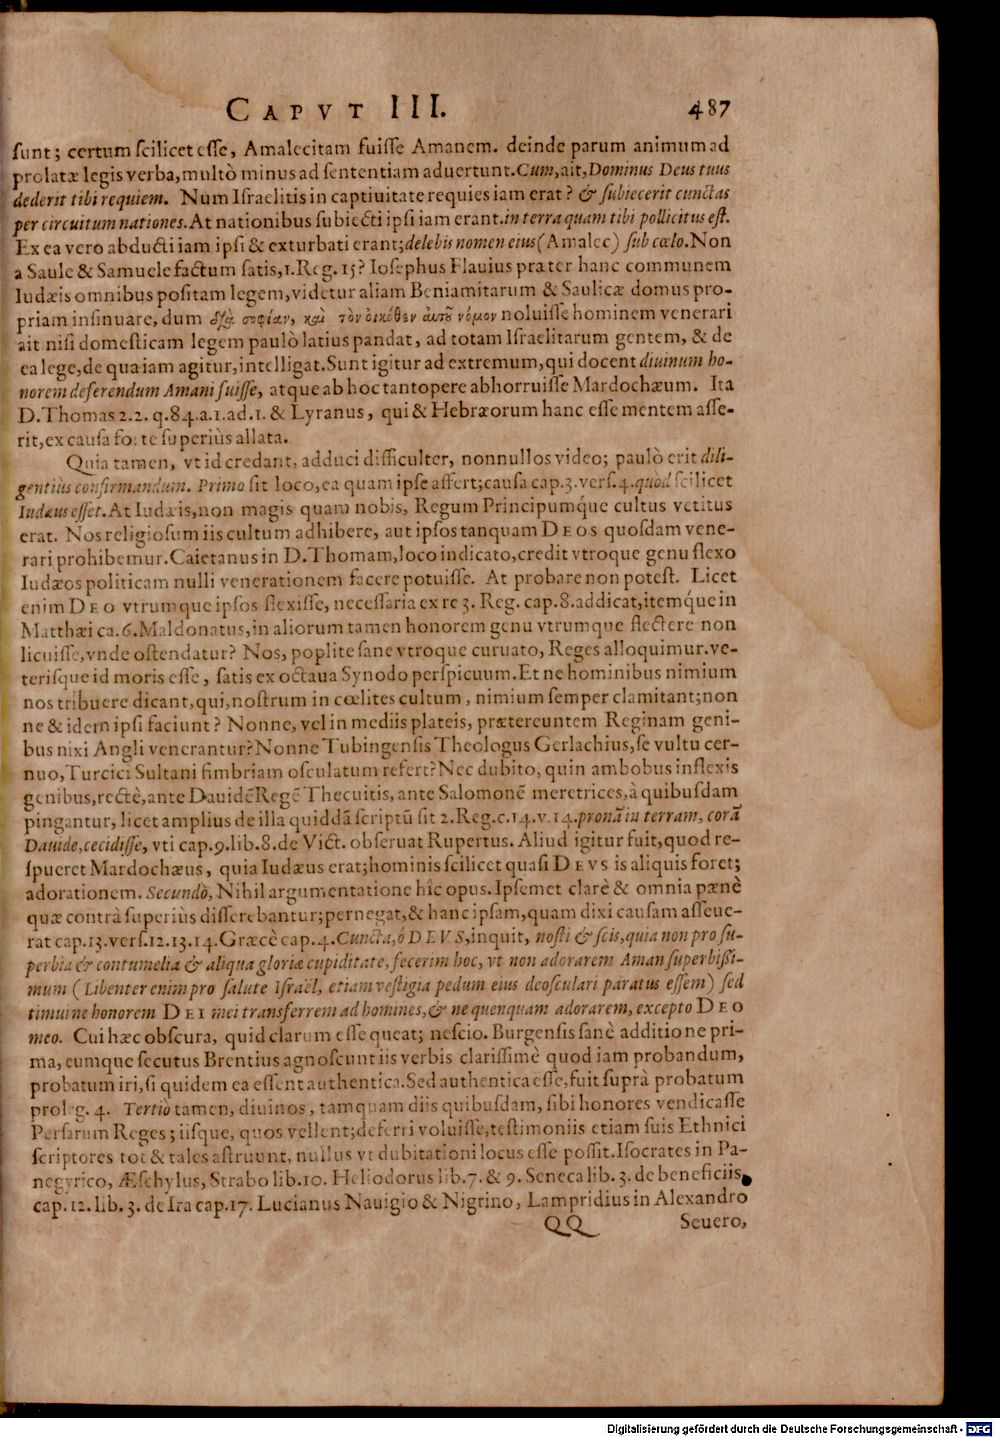 CAPVT III. 487
sunt; certum scilicet esse, Amalecitam fuisse Amanem. deinde parum animum ad
prolatæ legis verba, multò minus ad sententiam aduertunt. Cum, ait, Dominus Deus tuus
dederit tibi requiem. Num Israelitis in captiuitate requies iam erat? & subiecerit cunctas
per circuitum nationes. At nationibus subiecti ipsi iam erant. in terra quam tibi pollicitus est.
Ex ea vero abducti iam ipsi & exturbati erant; delebis nomen eius (Amalec) sub cœlo. Non
a Saule & Samuele factum satis, 1. Reg. 15? Iosephus Flauius præter hanc communem
Iudæis omnibus positam legem, videtur aliam Beniamitarum & Saulicæ domus pro-
priam insinuare, dum διὰ σοφίαν, καὶ τὸν οἴκοθεν αὐτοῦ νόμον noluisse hominem venerari
ait nisi domesticam legem paulò latius pandat, ad totam Israelitarum gentem, & de
ea lege, de qua iam agitur, intelligat. Sunt igitur ad extremum, qui docent diuinum ho-
norem deferendum Amani fuisse, atque ab hoc tantopere abhorruisse Mardochæum. Ita
D. Thomas 2. 2. q. 84. a. 1. ad. 1. & Lyranus, qui & Hebræorum hanc esse mentem asse-
rit, ex causa forte superiùs allata.
Quia tamen, vt id credant, adduci difficulter, nonnullos video; paulò erit dili-
gentiùs confirmandum. Primo sit loco, ea quam ipse affert; causa cap. 3. vers. 4. quod scilicet
Iudæus esset. At Iudæis, non magis quam nobis, Regum Principumque cultus vetitus
erat. Nos religiosum iis cultum adhibere, aut ipsos tanquam DEOS quosdam vene-
rari prohibemur. Caietanus in D. Thomam, loco indicato, credit vtroque genu flexo
Iudæos politicam nulli venerationem facere potuisse. At probare non potest. Licet
enim DEO vtrumque ipsos flexisse, necessaria ex re 3. Reg. cap. 8. addicat, itemque in
Matthæi ca. 6. Maldonatus, in aliorum tamen honorem genu vtrumque flectere non
licuisse, vnde ostendatur? Nos, poplite sane vtroque curuato, Reges alloquimur. ve-
terisque id moris esse, satis ex octaua Synodo perspicuum. Et ne hominibus nimium
nos tribuere dicant, qui, nostrum in cœlites cultum, nimium semper clamitant; non
ne & idem ipsi faciunt? Nonne, vel in mediis plateis, prætereuntem Reginam geni-
bus nixi Angli venerantur? Nonne Tubingensis Theologus Gerlachius, se vultu cer-
nuo, Turcici Sultani fimbriam osculatum refert? Nec dubito, quin ambobus inflexis
genibus, rectè, ante Dauidē Regē Thecuitis, ante Salomonē meretrices, à quibusdam
pingantur, licet amplius de illa quiddā scriptū sit 2. Reg. c. 14. v. 14. pronā in terram, corā
Dauide, cecidisse, vti cap. 9. lib. 8. de Vict. obseruat Rupertus. Aliud igitur fuit, quod re-
spueret Mardochæus, quia Iudæus erat; hominis scilicet quasi DEVS is aliquis foret;
adorationem. Secundò, Nihil argumentatione hîc opus. Ipsemet clarè & omnia pænè
quæ contrà superiùs differebantur; pernegat, & hanc ipsam, quam dixi causam asseue-
rat cap. 13. vers. 12. 13. 14. Græcè cap. 4. Cuncta, ó DEVS, inquit, nosti & scis, quia non pro su-
perbia & contumelia & aliqua gloriæ cupiditate, fecerim hoc, vt non adorarem Aman superbißi-
mum (Libenter enim pro salute Israël, etiam vestigia pedum eius deosculari paratus essem) sed
timui ne honorem DEI mei transferrem ad homines, & ne quenquam adorarem, excepto DEO
meo. Cui hæc obscura, quid clarum esse queat; nescio. Burgensis sanè additione pri-
ma, eumque secutus Brentius agnoscunt iis verbis clarissimè quod iam probandum,
probatum iri, si quidem ea essent authentica. Sed authentica esse, fuit suprà probatum
proleg. 4. Tertiò tamen, diuinos, tamquam diis quibusdam, sibi honores vendicasse
Persarum Reges; iisque, quos vellent; deferri voluisse, testimoniis etiam suis Ethnici
scriptores tot & tales astruunt, nullus vt dubitationi locus esse possit. Isocrates in Pa-
negyrico, Æschylus, Strabo lib. 10. Heliodorus lib. 7. & 9. Seneca lib. 3. de beneficiis,
cap. 12. lib. 3. de Ira cap. 17. Lucianus Nauigio & Nigrino, Lampridius in Alexandro
QQ Seuero,
Digitalisierung gefördert durch die Deutsche Forschungsgemeinschaft - DFG